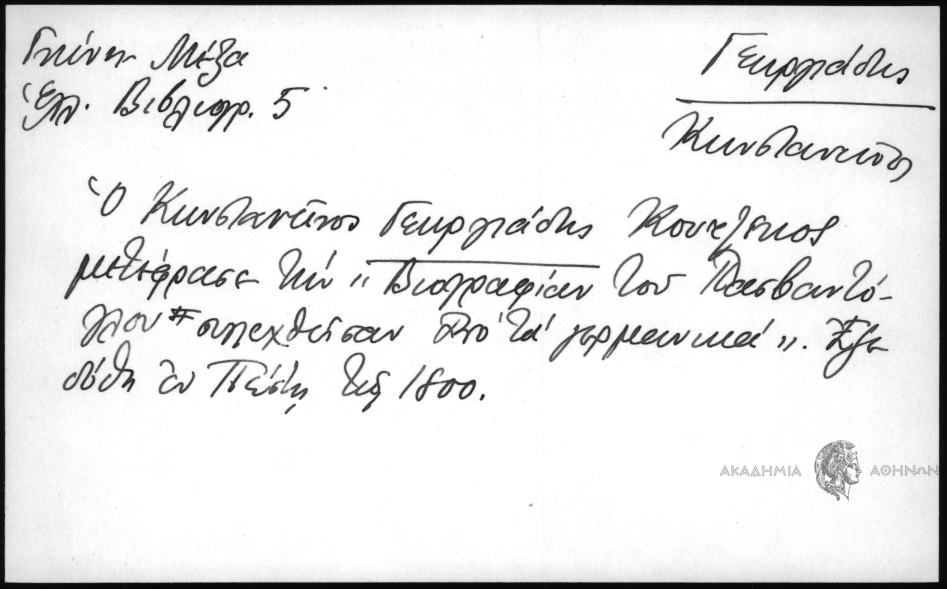 Γκίνη - Μέξα
Ἑλλ. Βιβλιογρ. 5
Γεωργιάδης
Κωνσταντῖνος
Ὁ Κωνσταντῖνος Γεωργιάδης Κουτζικος
μετέφρασε τήν "Βιογραφίαν τοῦ Πασβαντό-
γλου συλεχθεῖσαν ἀπό τά γερμανικά". Ἐξε
δόθη ἐν Πέστῃ τῷ 1800.
ΑΚΑΔΗΜΙΑ ΑΘΗΝΩΝ